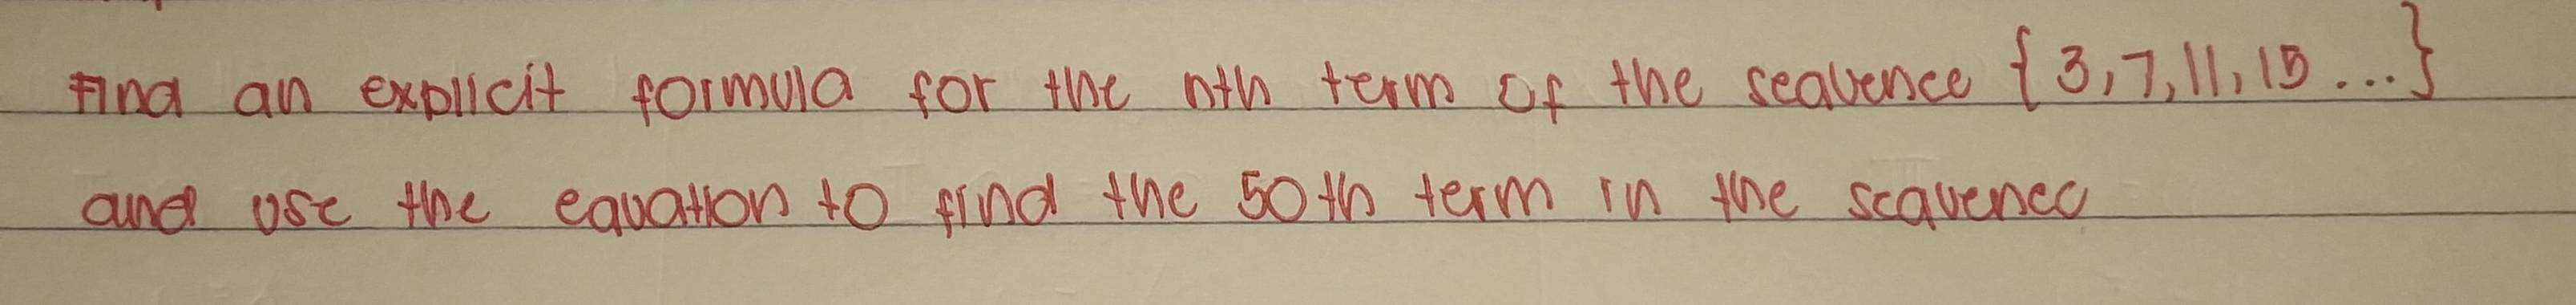 Find an explicit formula for the nth term of the seavence {3,7,11,15...}
and use the equation to find the 50th term in the seavence